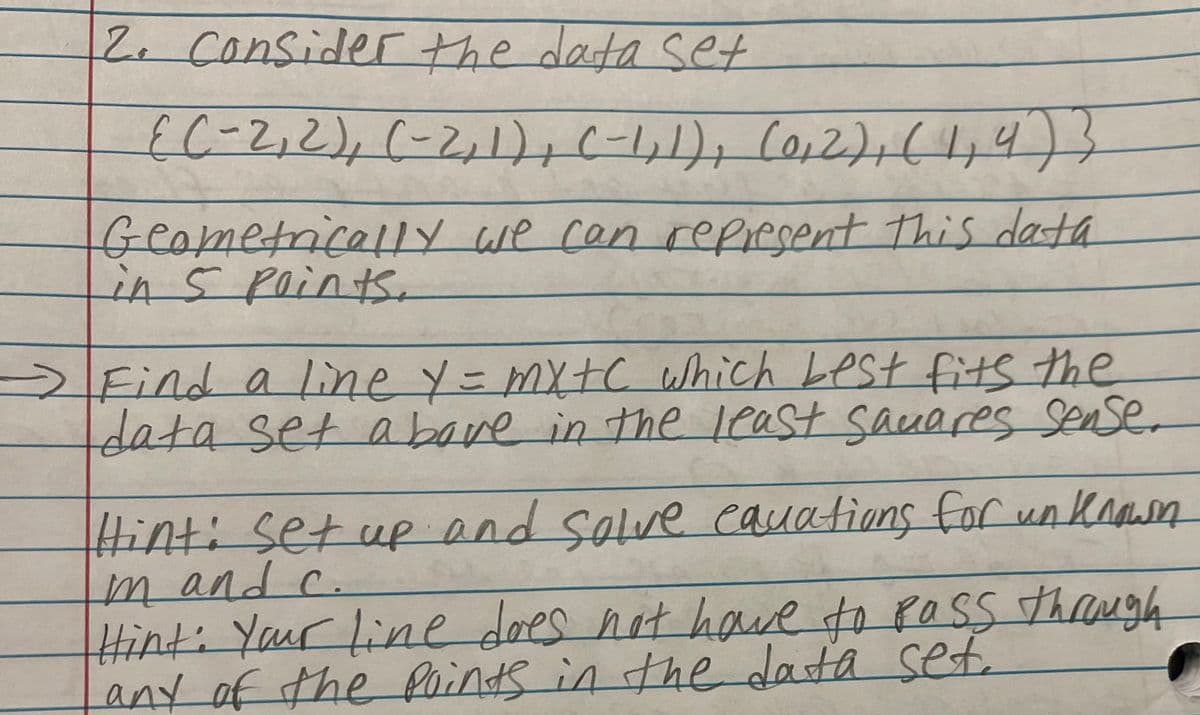 2. Consider the data set
{(-2,2), (-2,1), (-1,1), (0,2), (1,4)}
Geometrically we can represent this data
in 5 points.
→ Find a line y = mx+c which best fits the
data set above in the least squares sense.
Hint: Set up and solve equations for unknown
m and c.
Hint: Your line does not have to pass through
any of the points in the data set.